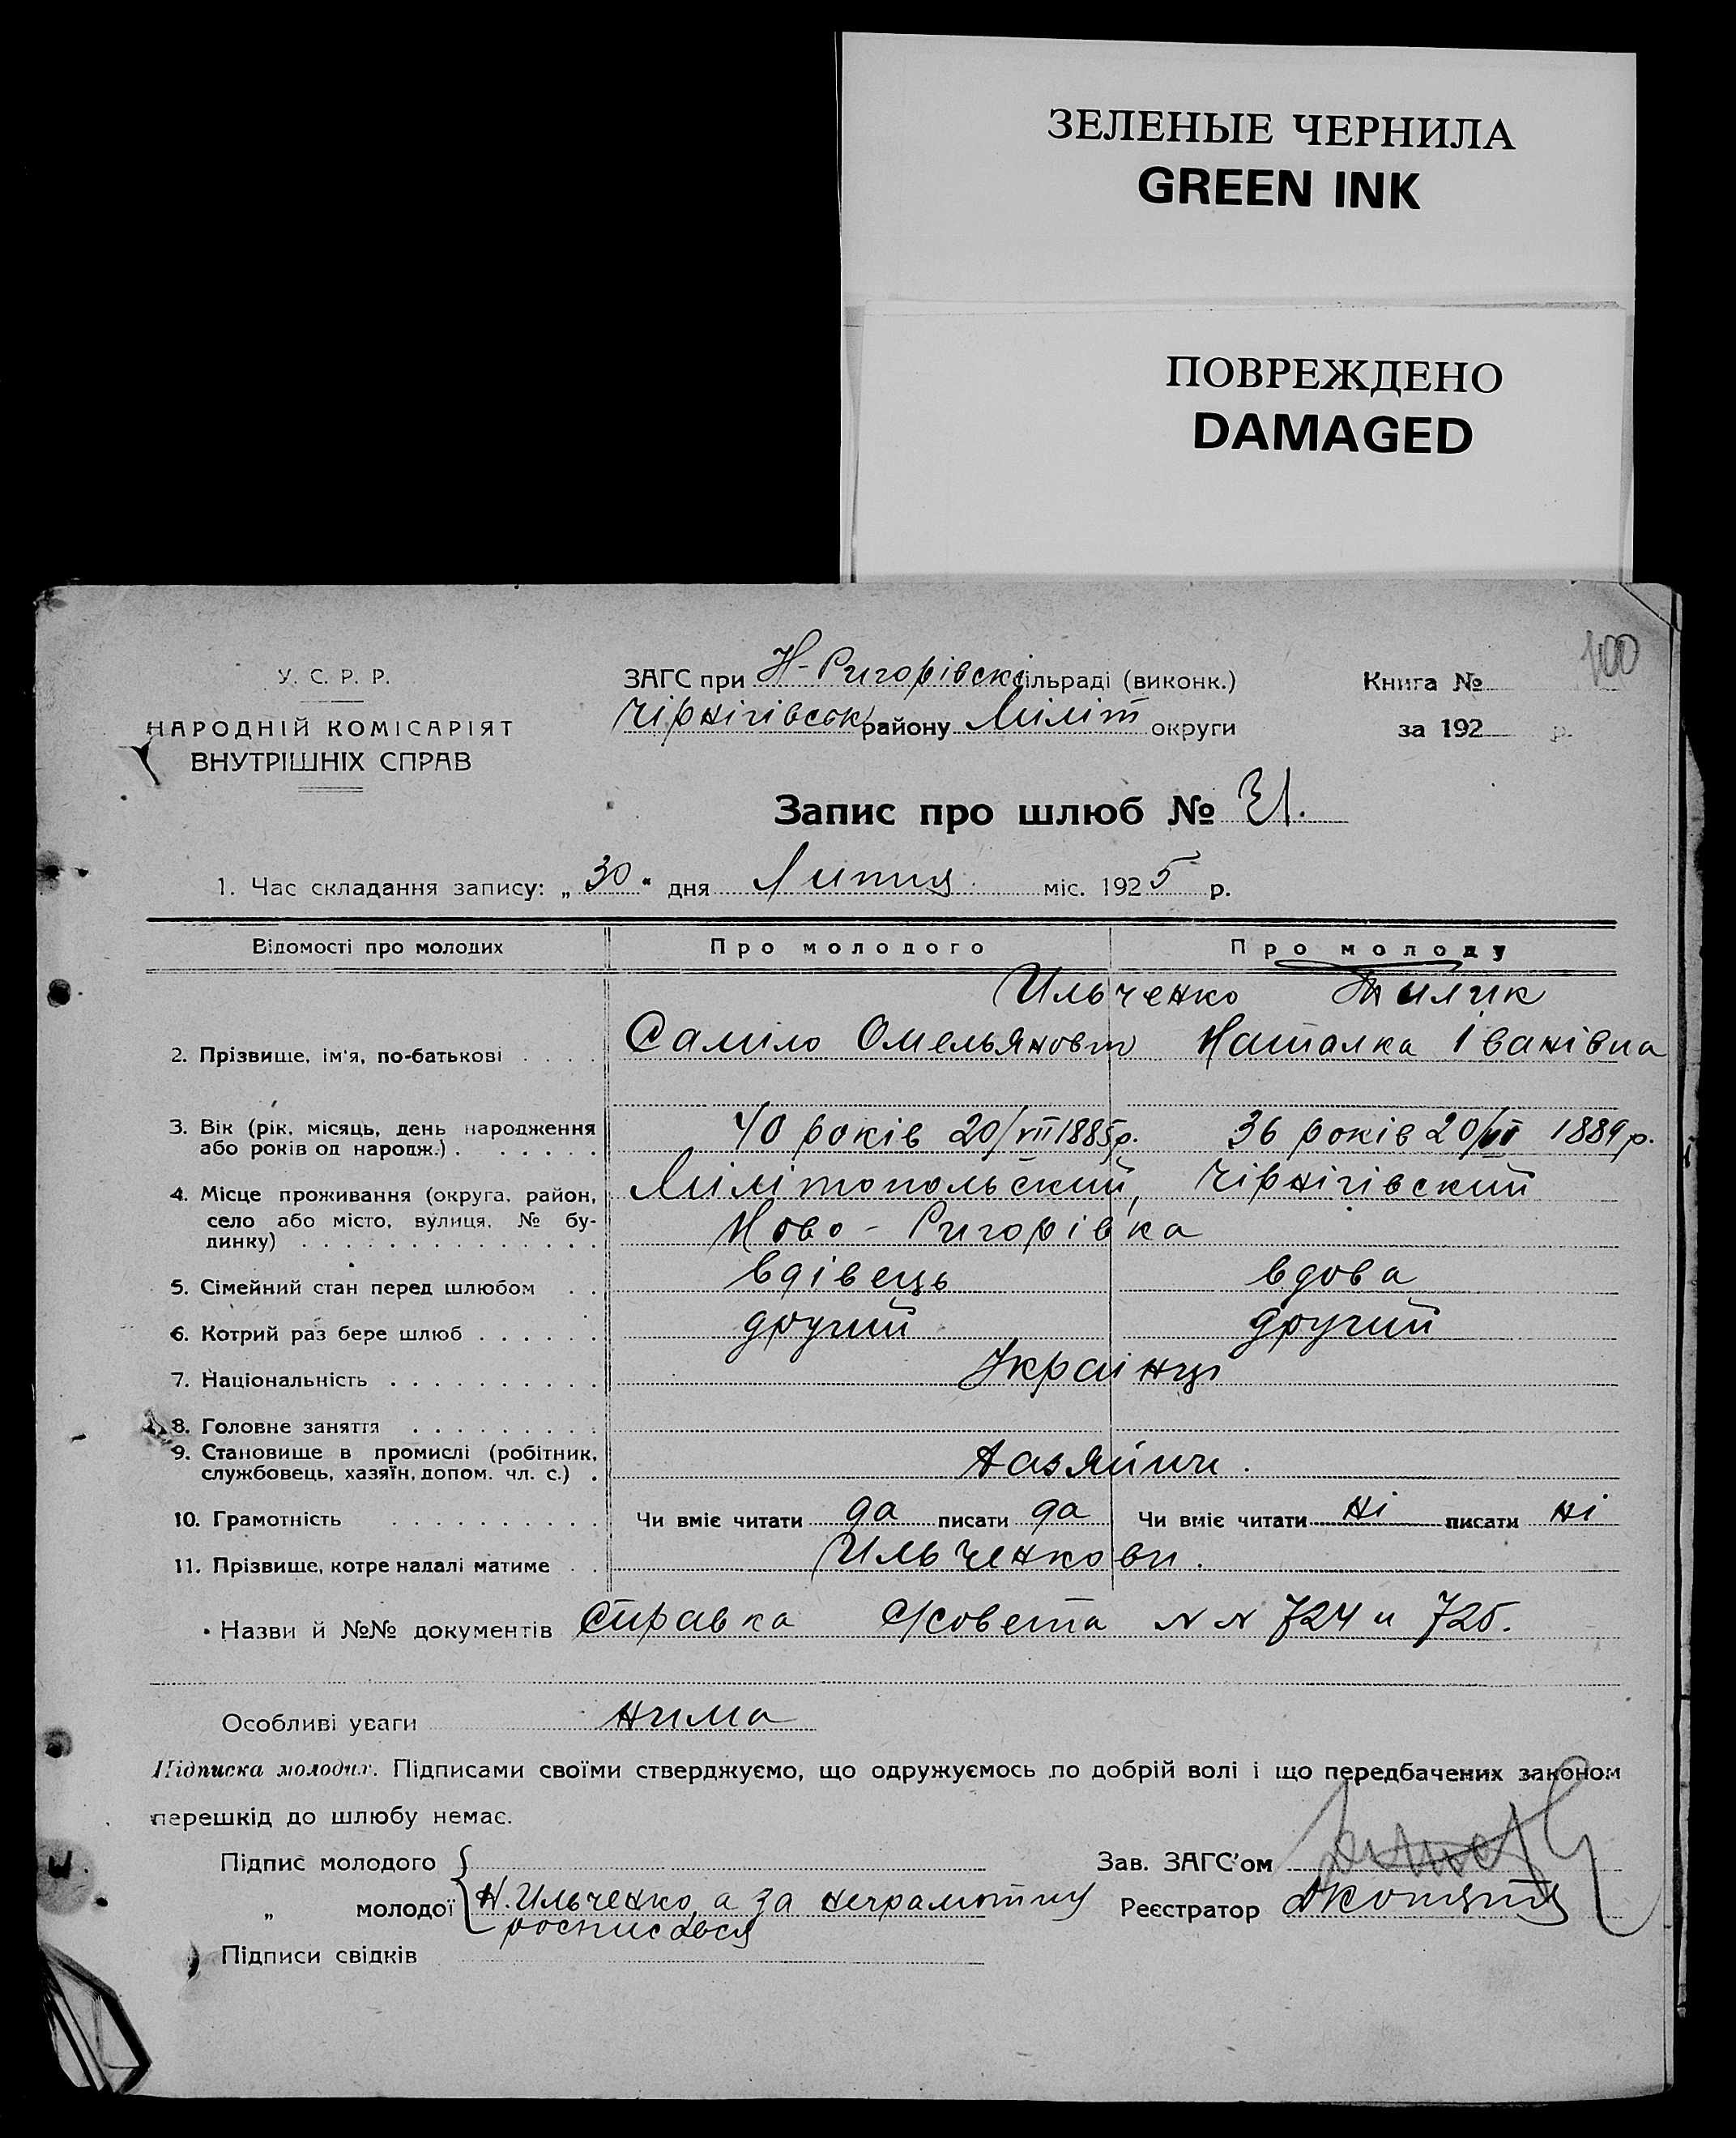 ЗЕЛЕНЫЕ ЧЕРНИЛА
GREEN INK
ПОВРЕЖДЕНО
DAMAGED
100
У. С. Р. Р.
НАРОДНІЙ КОМІСАРІЯТ
ВНУТРІШНІХ СПРАВ
ЗАГС при Н-Ригорівскі сільраді (виконк.)
Чірнігівськ районуМіліт округи
Книга №
за 192 р.
Запис про шлюб № 31.
1. Час складання запису: „30“ дня Липця міс. 1925 р.
Відомості про молодих Про молодого Про молоду
Ильченко
2. Прізвище, ім'я, по-батькові . . . . Саміло Омельянович Наталка Іванівна
3. Вік (рік, місяць, день народження 40 років 20/VII 1885р. 36 років 20/VII 1889р.
або років од народж.) . . . . . .
4. Місце проживання (округа, район, Мілітопольский, Чірнігівский
село або місто, вулиця, № бу- Ново-Ригорівка
динку) . . . . . . . . . . . . . .
5. Сімейний стан перед шлюбом . . вдівець вдова
6. Котрий раз бере шлюб . . . . . . другий другий
7. Національність . . . . . . . . . . Українці
8. Головне заняття . . . . . . . . .
9. Становище в промислі (робітник,
службовець, хазяїн, допом. чл. с.) . Хазяйини.
10. Грамотність . . . . . . . . . . Чи вміє читати да писати да Чи вміє читати ні писати ні
11. Прізвище, котре надалі матиме . . Ильченкови.
Назви й №№ документів Справка С/совета N N 724 и 725.
Особливі уваги нима
Підписка молодих. Підписами своїми стверджуємо, що одружуємось по добрій волі і що передбачених законом
перешкід до шлюбу немає.
Підпис молодого
Зав. ЗАГС'ом
„ молодої Н. Ильченко, а за неграмотну
росписався
Реєстратор
Підписи свідків